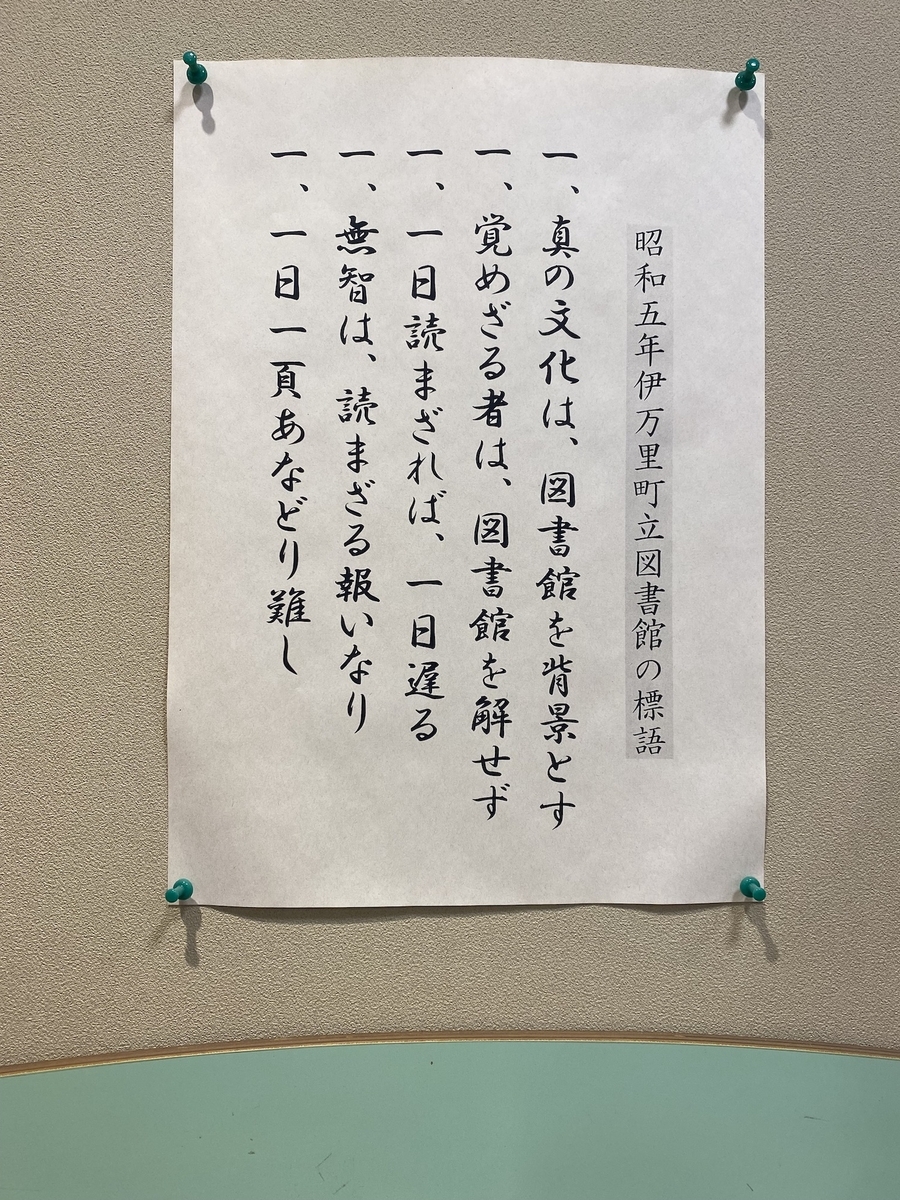 昭和五年伊万里町立図書館の標語
一、真の文化は、図書館を背景とす
一、覚めざる者は、図書館を解せず
一、一日読まざれば、一日遅る
一、無智は、読まざる報いなり
一、一日一頁あなどり難し